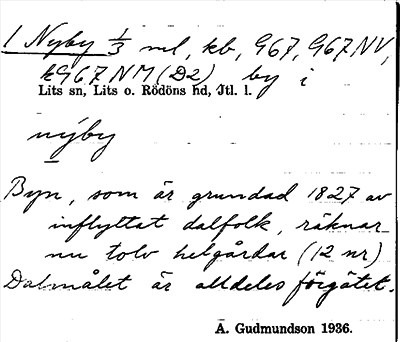 1 Nyby 1/3 ml, kb, G67, G67NV,
kG67NM (D2) by i
Lits sn, Lits o. Rödöns hd, Jtl. l.
nýby
Byn, som är grundad 1827 av
inflyttat dalfolk, räknar
nu tolv helgårdar (12 nr)
Dalmålet är alldeles förgätet.
A. Gudmundson 1936.